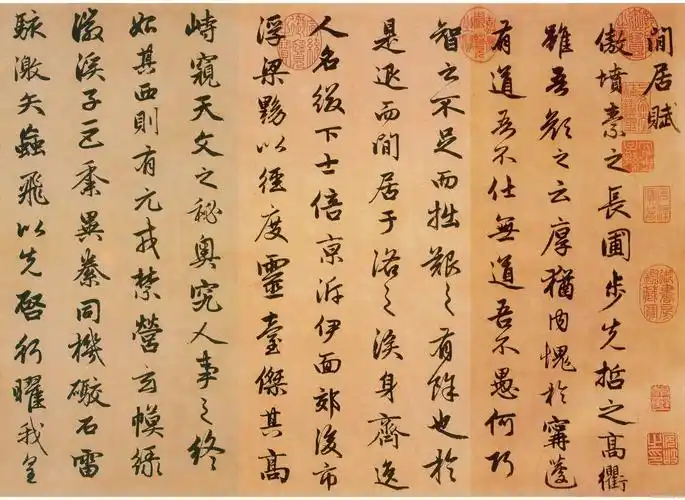 閒居賦
傲墳素之長圃步先哲之高衢
雖吾顏之云厚猶内愧於甯蘧
有道吾不仕無道吾不愚何巧
智之不足而拙艱之有餘也於
是退而閒居于洛之涘身齊逸
人名綴下士倍京泝伊面郊後市
浮梁黝以徑度靈臺傑其高
峙窺天文之秘奥究人事之終
始其西則有元戎禁營玄幙綠
徽溪子巨黍異絭同機礮石雷
駭激矢蝱飛以先啓行曜我皇